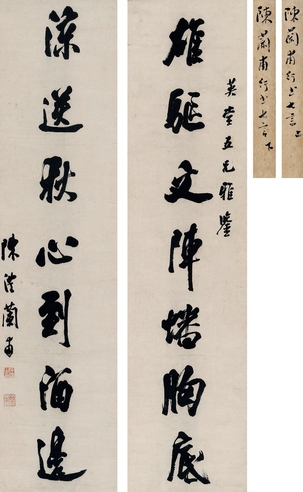 陳蘭甫行書七言上
陳蘭甫行書七言下
英堂五兄雅鑒
雄驅文陣蟠胸底
涼送秋心到酒邊
陳澧蘭甫